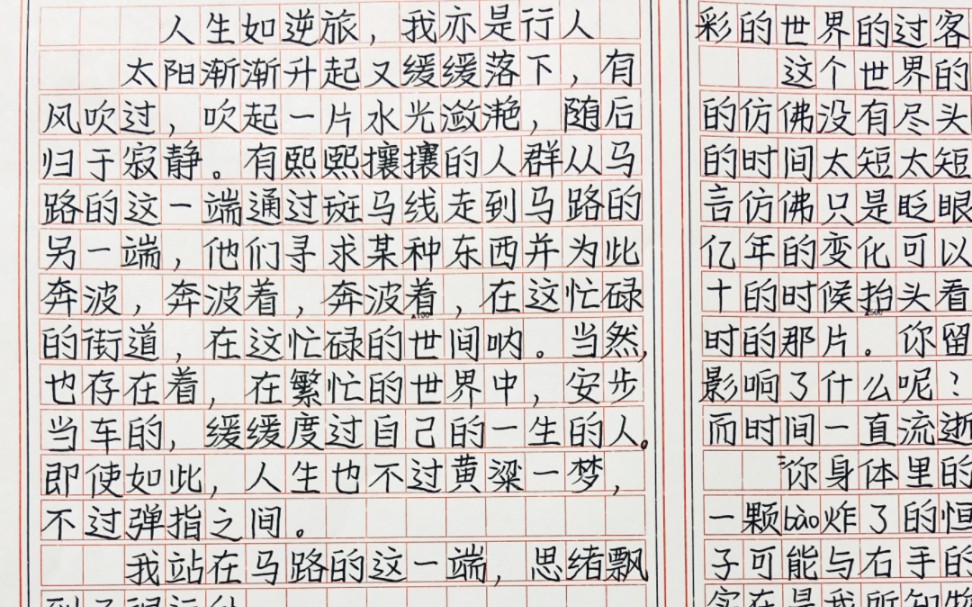 人生如逆旅，我亦是行人
太阳渐渐升起又缓缓落下，有
风吹过，吹起一片水光潋滟，随后
归于寂静。有熙熙攘攘的人群从马
路的这一端通过斑马线走到马路的
另一端，他们寻求某种东西并为此
奔波，奔波着，奔波着，在这忙碌
的街道，在这忙碌的世间呐。当然，
也存在着，在繁忙的世界中，安步
当车的，缓缓度过自己的一生的人。
即使如此，人生也不过黄粱一梦，
不过弹指之间。
我站在马路的这一端，思绪飘
彩的世界的过客
这个世界的
的仿佛没有尽头
的时间太短太短
言仿佛只是眨眼
亿年的变化可以
十的时候抬头看
时的那片。你留
影响了什么呢？
而时间一直流逝
你身体里的
一颗bào炸了的恒
子可能与右手的
实在是我所知